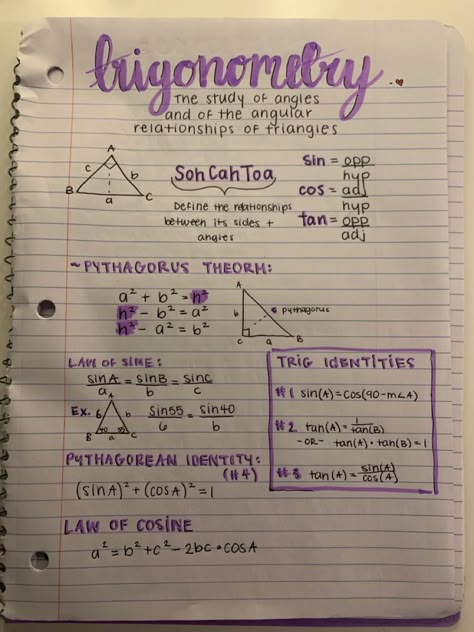 trigonometry
The study of angles
and of the angular
relationships of triangles
A
c b
B a C
SohCahToa
Define the relationships
between its sides +
angles
sin = opp
hyp
cos = adj
hyp
tan = opp
adj
~PYTHAGORUS THEORM:
a² + b² = h²
h² - b² = a²
h² - a² = b²
A
b
pythagorus
C a B
LAW OF SINE:
sinA/a = sinB/b = sinC/c
Ex.
A
6 b
B 40 55 C
a
sin55/6 = sin40/b
TRIG IDENTITIES
#1 sin(A)=cos(90-m∠A)
#2 tan(A)=1/tan(B)
-OR- tan(A)·tan(B)=1
#3 tan(A)=sin(A)/cos(A)
PYTHAGOREAN IDENTITY:
(#4)
(sinA)²+(cosA)²=1
LAW OF COSINE
a²=b²+c²-2bc·cosA